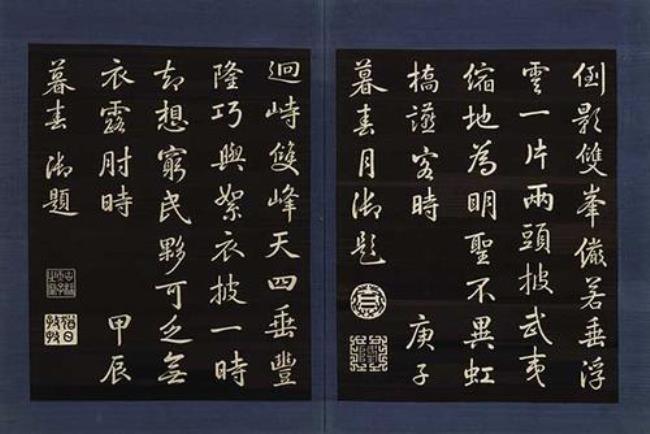 倒影雙峯儼若垂浮
雲一片兩頭披武夷
縮地為明聖不異虹
橋讌客時 庚子
暮春月御題
迴峙雙峰天四垂豐
隆巧與絮衣披一時
却想窮民夥可乏無
衣露肘時 甲辰
暮春 御題
猶日孜孜